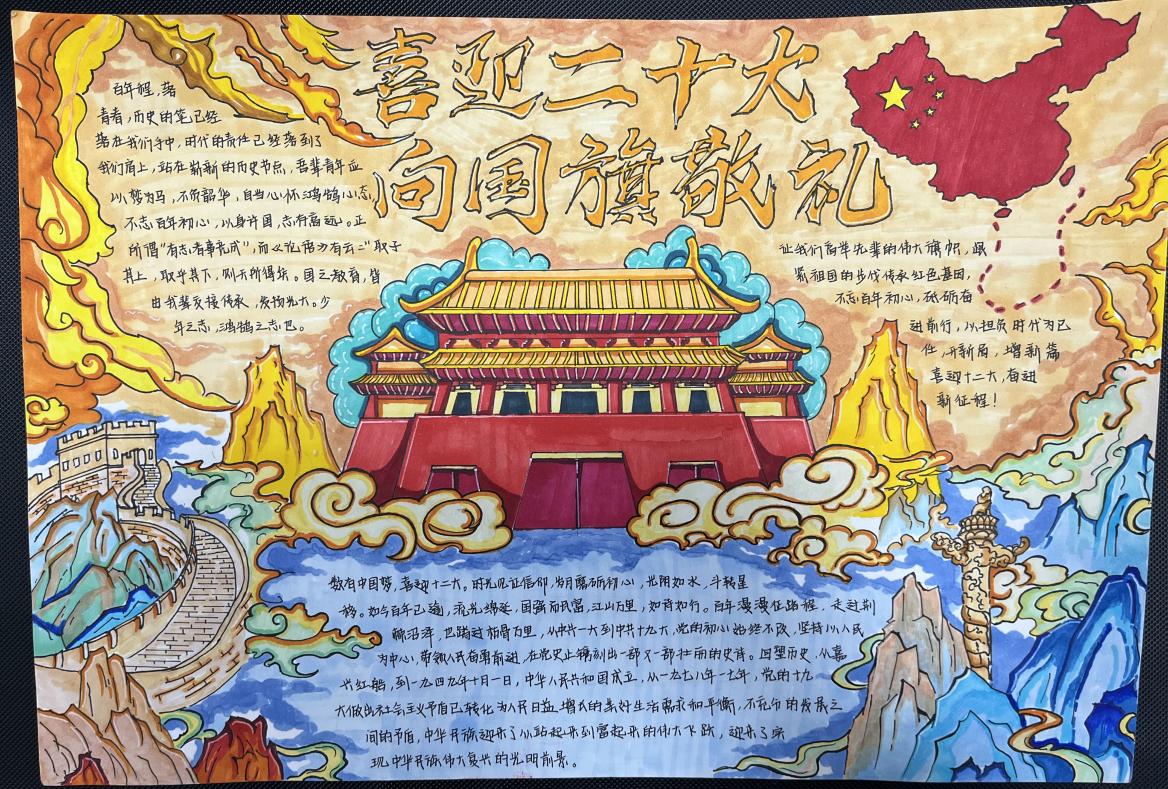 喜迎二十大
向国旗敬礼
百年征程,落
青春,历史的笔已经
落在我们手中,时代的责任已经落到了
我们肩上,站在崭新的历史节点,吾辈青年应
以梦为马,不负韶华,自当心怀鸿鹄心志,
不忘百年初心,以身许国,志存高远。正
所谓“有志者事竟成”,而《论语》有云:“取乎
其上,取乎其下,则无所得矣。国之教育,皆
由我辈友接传承,发扬光大。少
年之志,鸿鹄之志也。
让我们高举先辈的伟大旗帜,跟
紧祖国的步伐传承红色基因,
不忘百年初心,砥砺奋
进前行,以担负时代为已
任,开新局,增新篇
喜迎十二大,奋进
新征程!
数百中国梦,喜迎十二大。时光见证信仰,岁月磨砺初心,光阴如水,斗转星
移。如今百年已过,流光绵延,国强而民富,江山万里,如肯如行。百年漫漫征路程,走过荆
棘沼泽,也踏过枯骨万里,从中共一大到中共十九大,党的初心始终不改,坚持以人民
为中心,带领人民奋勇前进,在党史上镌刻出一部又一部壮丽的史诗。回望历史,从嘉
兴红船,到一九四九年十月一日,中华人民共和国成立,从一九七八年一七年,党的十九
大做出社会主义矛盾已转化为人民日益增长的美好生活需求和平衡,不充分的发展之
间的矛盾,中华民族迎来了从站起来到富起来的伟大飞跃,迎来了实
现中华民族伟大复兴的光明前景。